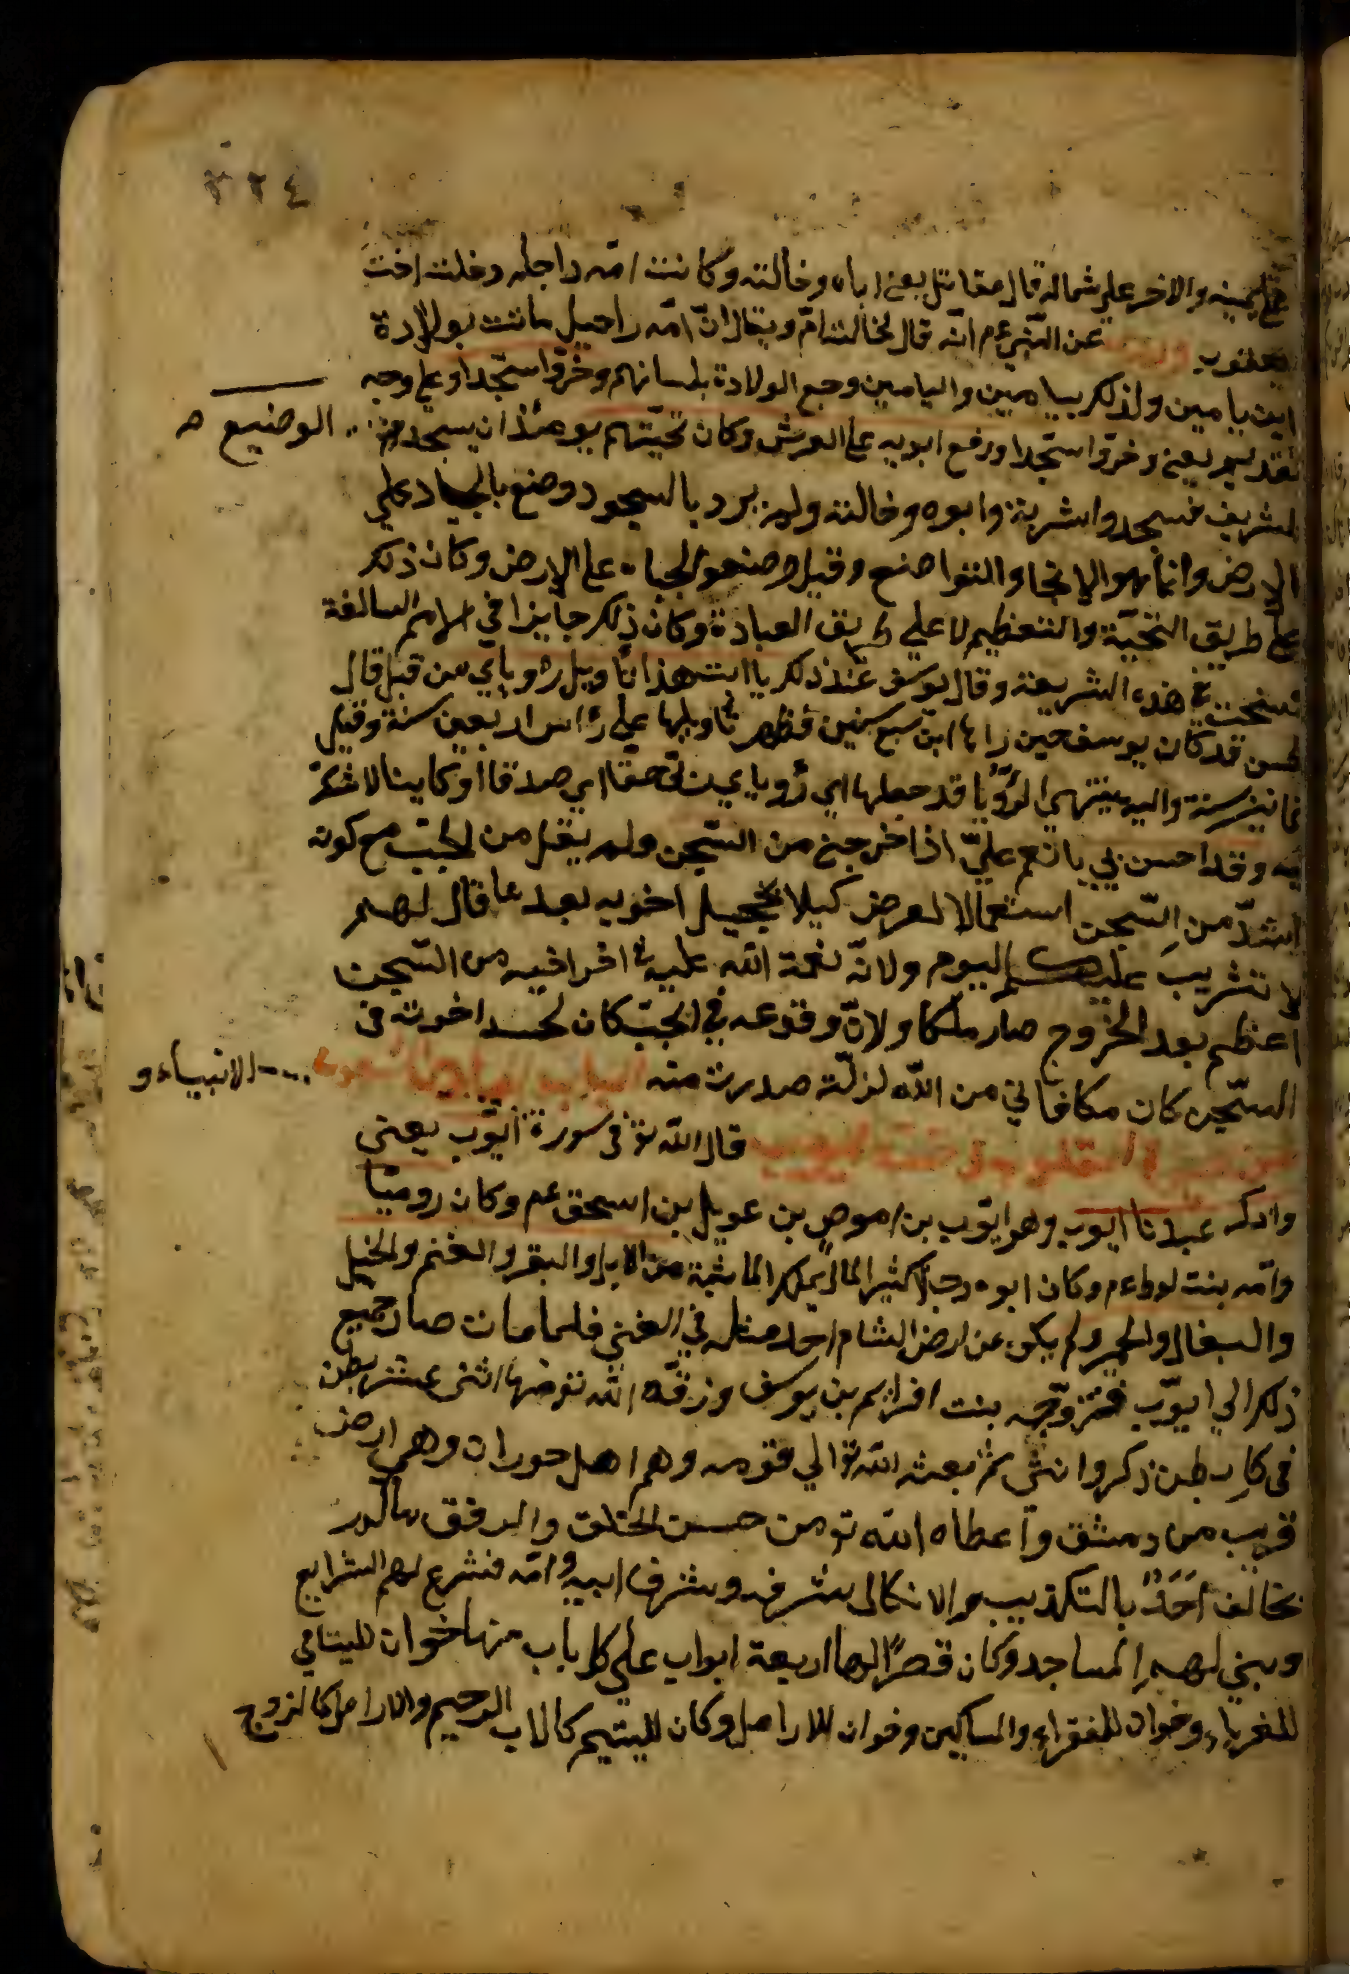 ٣٢٤
يمينه والاخر على شماله قال مقاتل يعنى اباه وخالته وكانت امه راحله دخلت اخت
يعقوب وروى عن النبي عم انه قال الخالة امّ ويقال انّ امّه راحيل ماتت بولادة
ابن يامين ولذلك بيامين واليامين وجع الولادة بلسانهم وخرّوا سجّدا وعلى وجه
تقديم يعنى وخرّوا سجّدا ورفع ابويه على العرش وكان تحيّتهم يومئذ ان يسجد الوضيع
لشريف فسجدوا اخوته وابوه وخالته ولم يرد بالسجود وضع بالجباد على
الارض وانما هو الانحنا والتواضع وقيل وضعوا الجباه على الارض وكان ذلك
على طريق التحيّة والتعظيم لا على طريق العبادة وكان ذلك جايزا في الامم السالفة
نسخت في هذه الشريعة وقال يوسف عند ذلك يا ابت هذا تأويل رؤياي من قبل قال
لحسن قد كان يوسف حين رأها ابن سبع سنين فظهر تأويلها على رأس اربعين سنة وقيل
ثمانين سنة واليه ينتهي الرؤيا قد جعلها اي رؤياي ربي حقا اي صدقا او كاينا لا شك
فيه وقد احسن بي بانعم عليّ اذ اخرجني من السّجن ولم يقل من الجبّ مع كونه
اشدّ من السّجن استعمالا لعرض كيلا يخجيل اخويه بعد ما قال لهم
لا تثريب عليكم اليوم ولانّه نعمة الله عليه في اخراجه من السّجن
اعظم بعد الخروج صار ملكا ولانّ وقوعه في الجبّ كان لحسد اخوته في
السّجن كان مكافاتي من الله لزلّة صدرت منه الباب السابع الانبياء و
قال الله تع فى سورة ايّوب يعنى
واذكر عبدنا ايوب وهو ايّوب بن اموص بن عويل بن اسحق عم وكان روميّا
وامّه بنت لوط عم وكان ابوه رجلا كثير المال يملك الماشية من الابل والبقر والغنم والخيل
والبغال والحمير ولم يكن عن ارض الشام احد مثله في الغنى فلما مات صار جميع
ذلك الي ايّوب فتزوّجه بنت افرايم بن يوسف ورزقه الله تع منها اثنى عشر بطن
فى كل بطن ذكر وانثى ثم بعثه الله تع الي قومه وهم اهل حوران وهى ارض
قريب من دمشق واعطاه الله تع من حسن الخلق والرفق مالم
يخالف احدٌ بالتكذيب والانكال بشرفه وشرف ابيه وامّه فشرع لهم الشرايع
وبنى لهم المساجد وكان قصرًا لها اربعة ابواب على كل باب منها خوان لليتامي
للغرباء وخوان للفقراء والمساكين وخوان للارامل وكان لليتيم كالاب الرحيم والارامل كالزوج